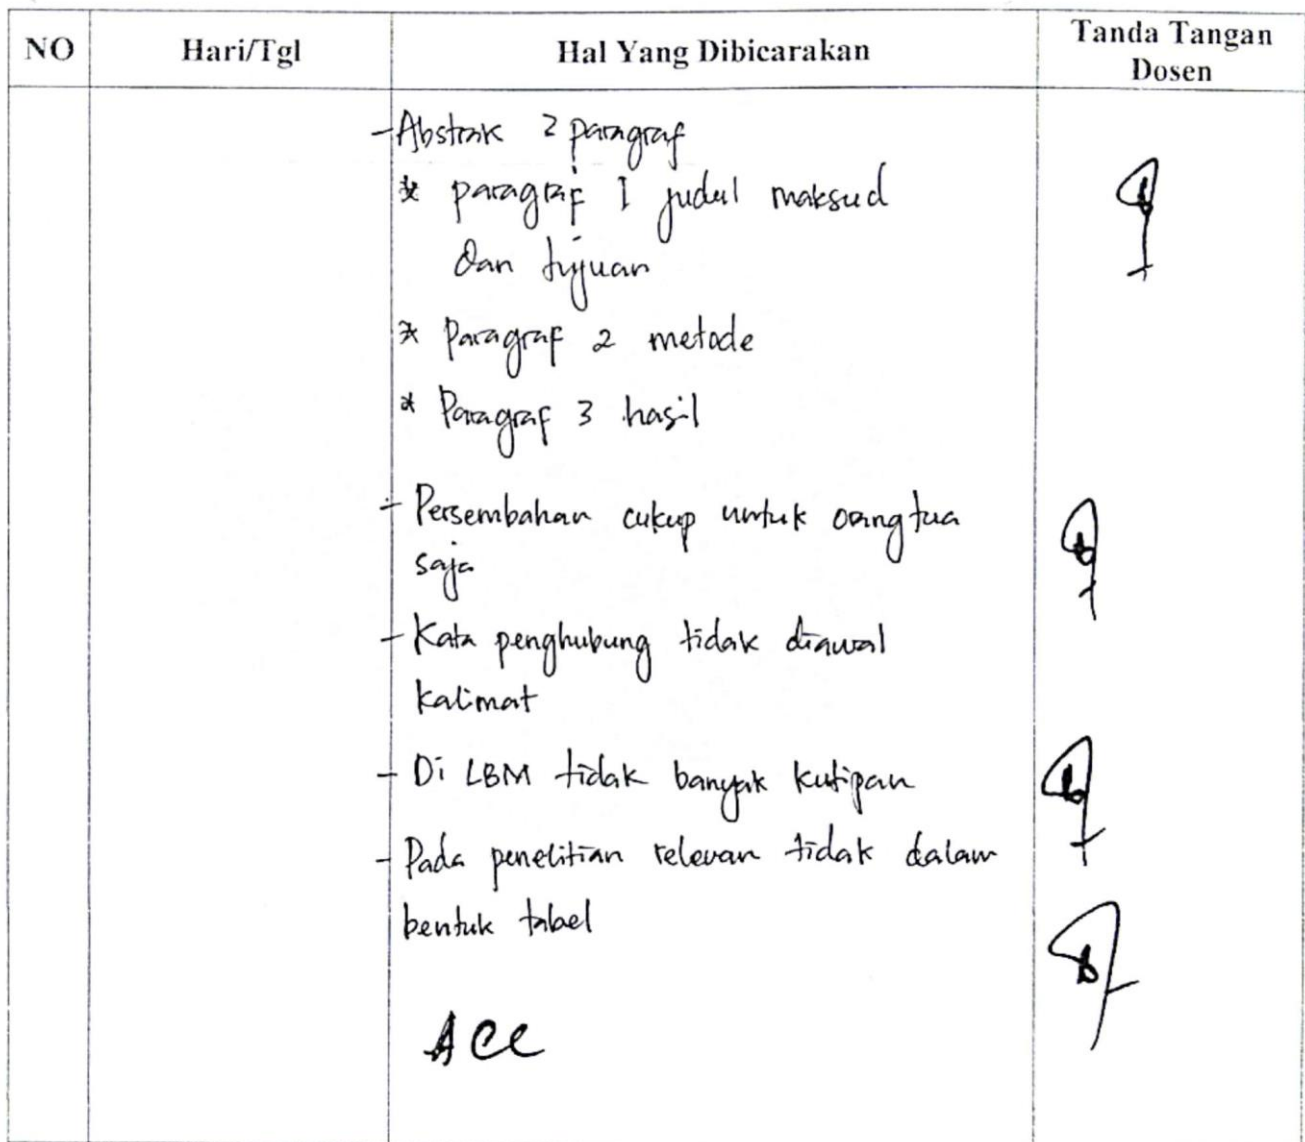 NO Hari/Tgl Hal Yang Dibicarakan Tanda Tangan
Dosen
- Abstrak 2 paragraf
* paragraf I judul maksud
dan tujuan
* Paragraf 2 metode
* Paragraf 3 hasil
- Persembahan cukup untuk orang tua
saja
- Kata penghubung tidak diawal
kalimat
- Di LBM tidak banyak kutipan
- Pada penelitian relevan tidak dalam
bentuk tabel
ACC